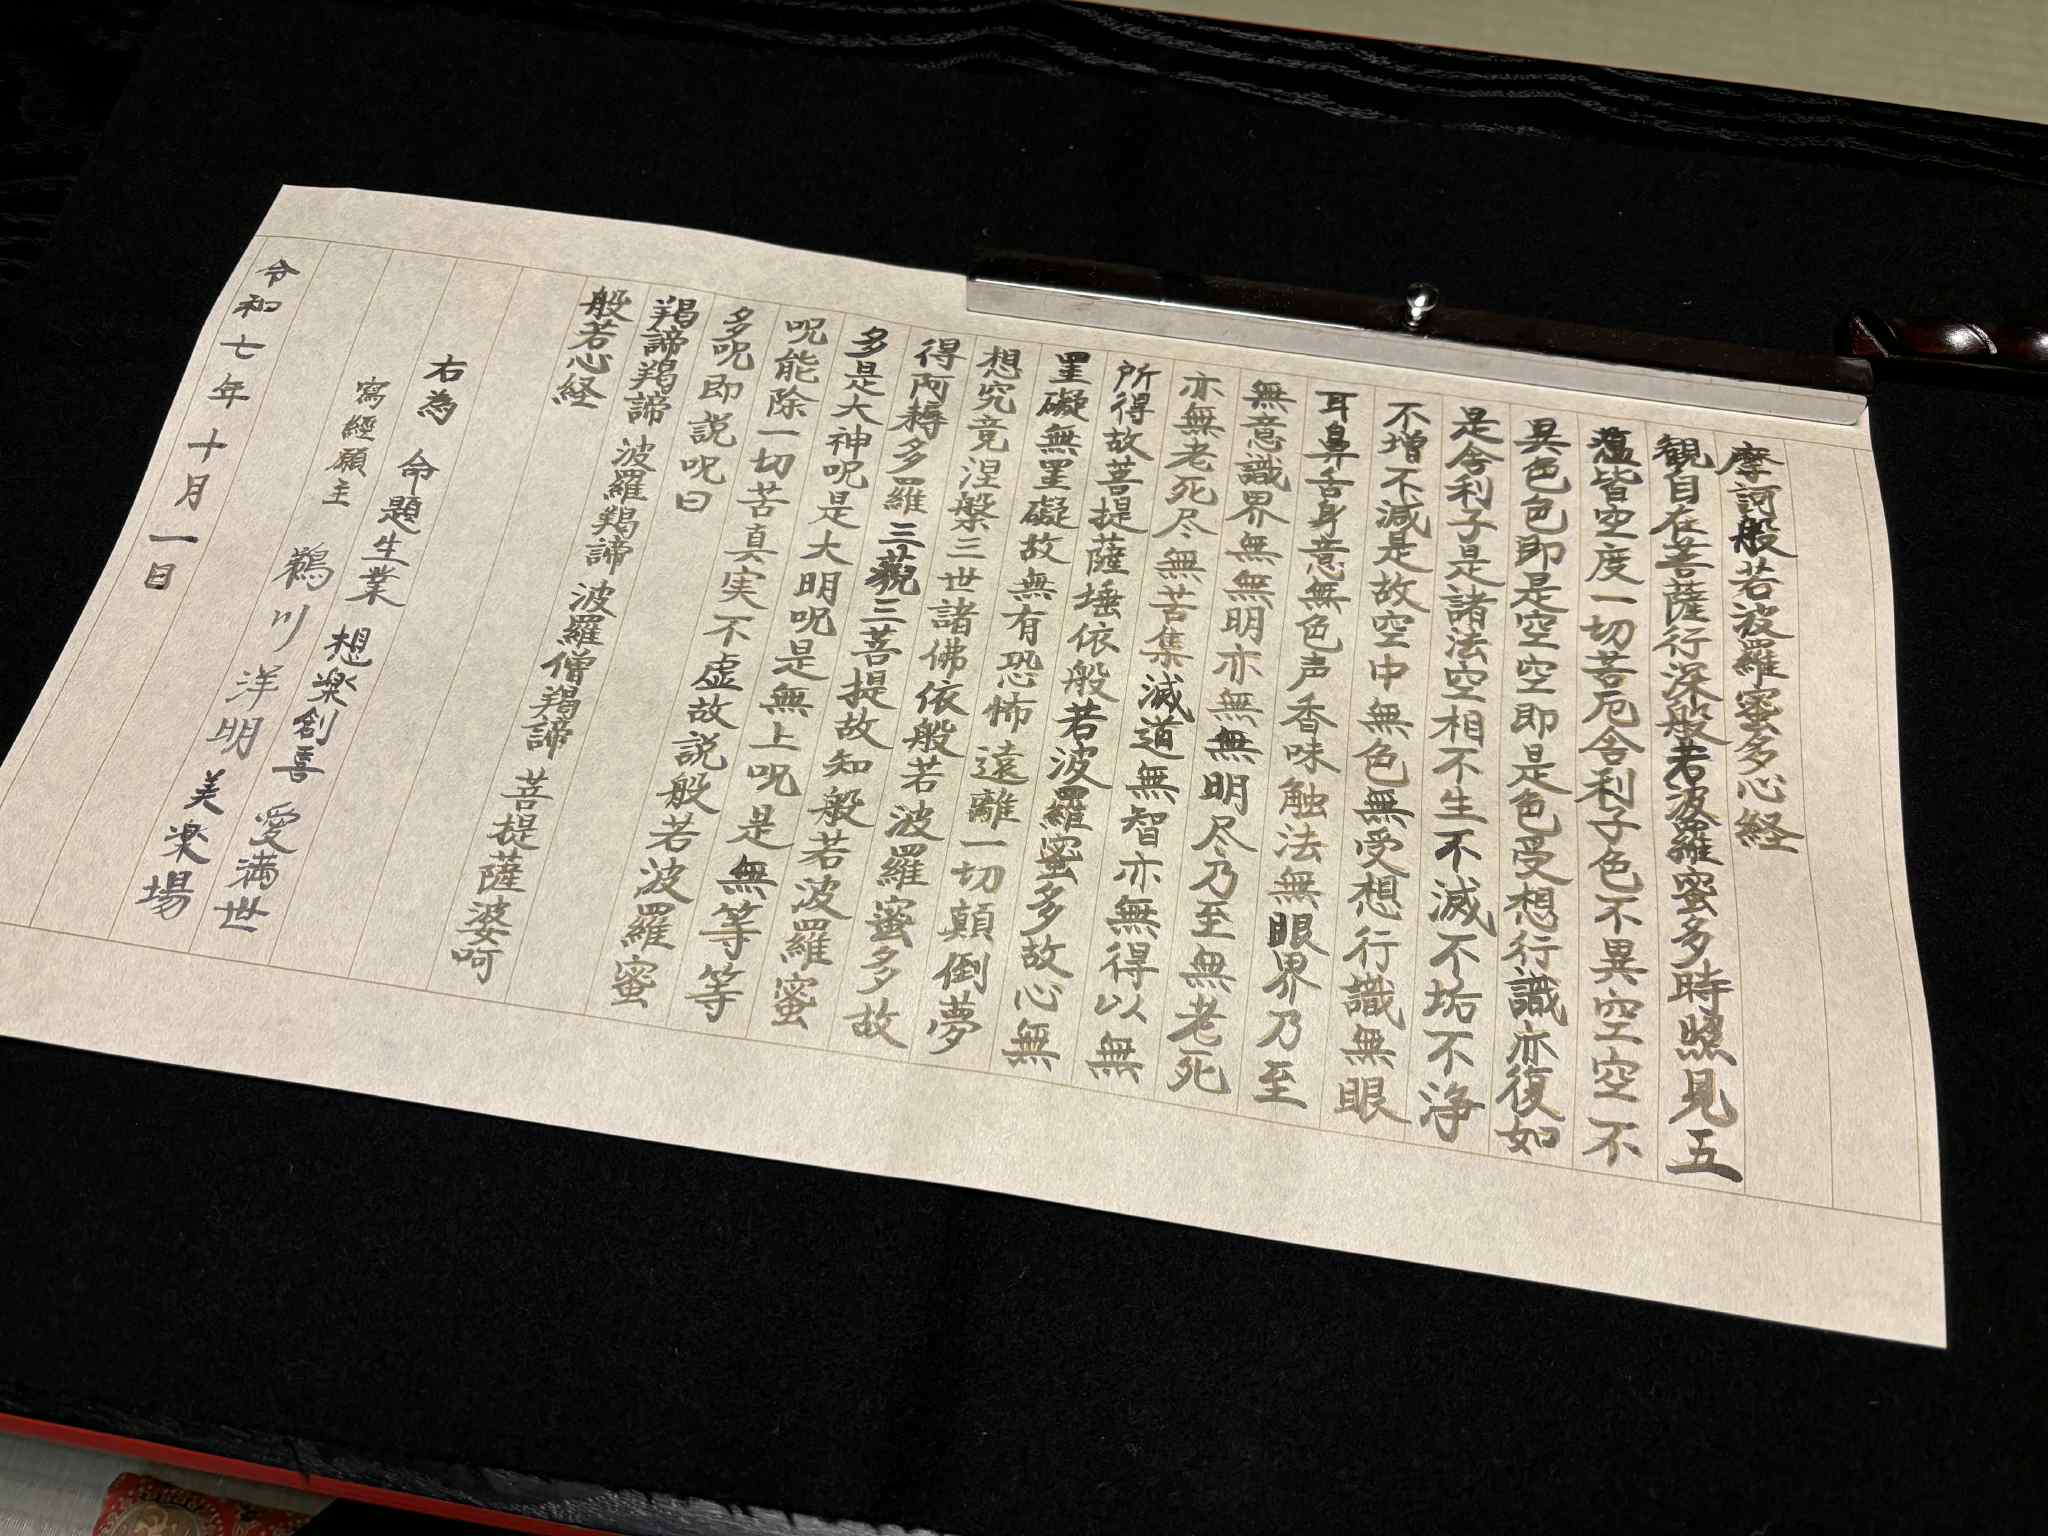 摩訶般若波羅蜜多心経
観自在菩薩行深般若波羅蜜多時照見五
蘊皆空度一切苦厄舎利子色不異空空不
異色色即是空空即是色受想行識亦復如
是舎利子是諸法空相不生不滅不垢不浄
不増不減是故空中無色無受想行識無眼
耳鼻舌身意無色声香味触法無眼界乃至
無意識界無無明亦無無明尽乃至無老死
亦無老死尽無苦集滅道無智亦無得以無
所得故菩提薩埵依般若波羅蜜多故心無
罣礙無罣礙故無有恐怖遠離一切顛倒夢
想究竟涅槃三世諸佛依般若波羅蜜多故
得阿耨多羅三藐三菩提故知般若波羅蜜
多是大神呪是大明呪是無上呪是無等等
呪能除一切苦真実不虚故説般若波羅蜜
多呪即説呪曰
羯諦羯諦 波羅羯諦 波羅僧羯諦 菩提薩婆呵
般若心経
右為 命題生業 想楽創喜 愛満世
寫經願主 鵜川洋明 美楽場
令和七年十月一日